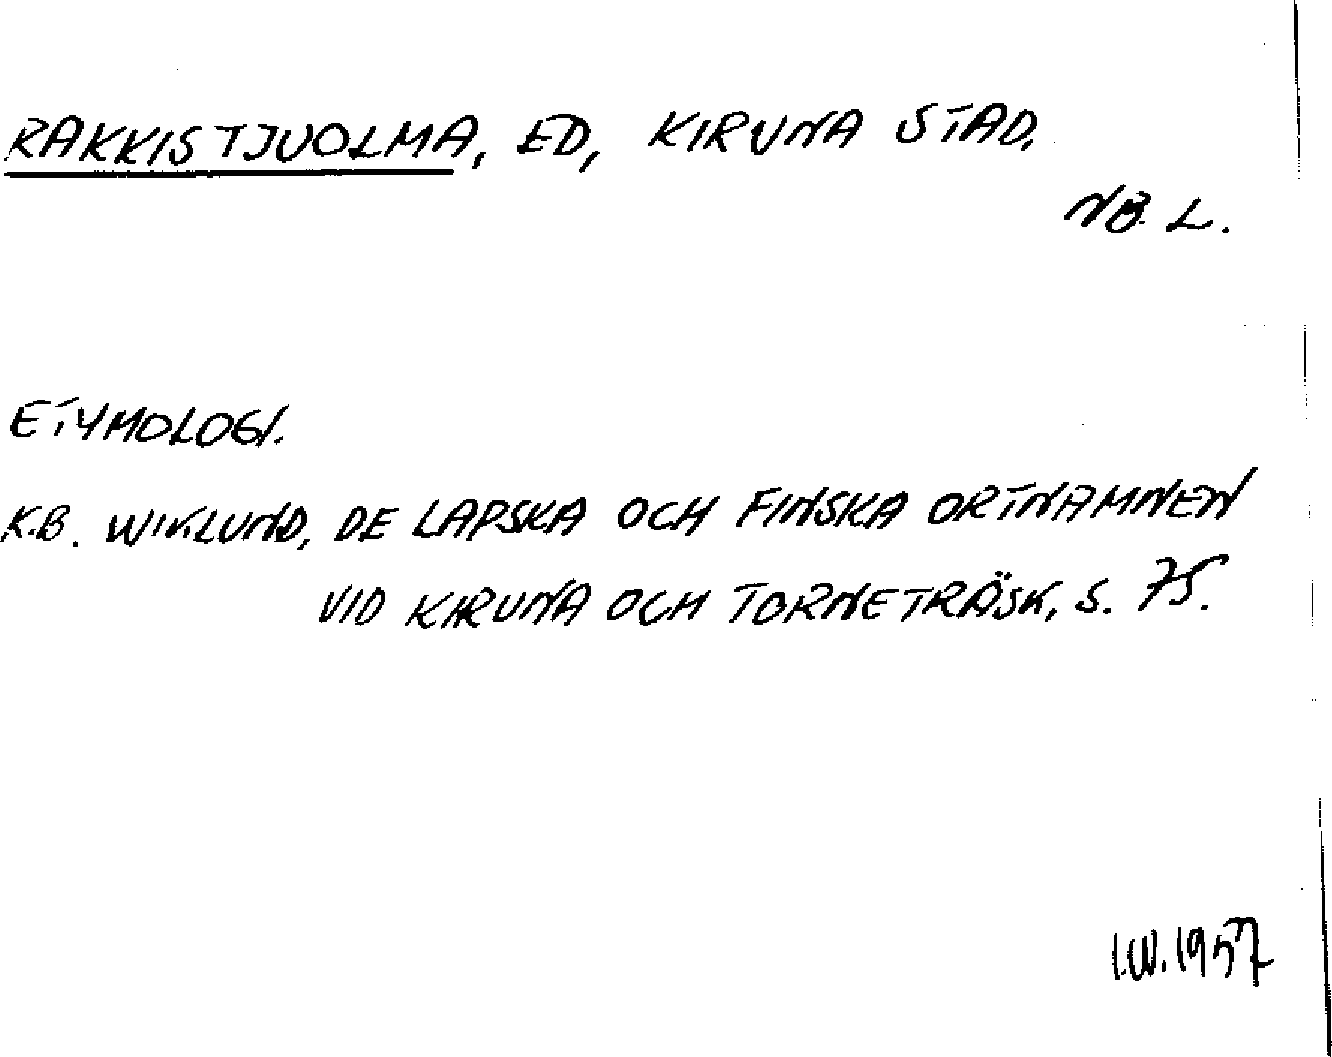 RAKKISTJUOLMA, ED, KIRUNA STAD.
NB. L.
ETYMOLOGI.
K.B. WIKLUND, DE LAPSKA OCH FINSKA ORTNAMNEN
VID KIRUNA OCH TORNETRÄSK, S. 75.
I.W. 1957